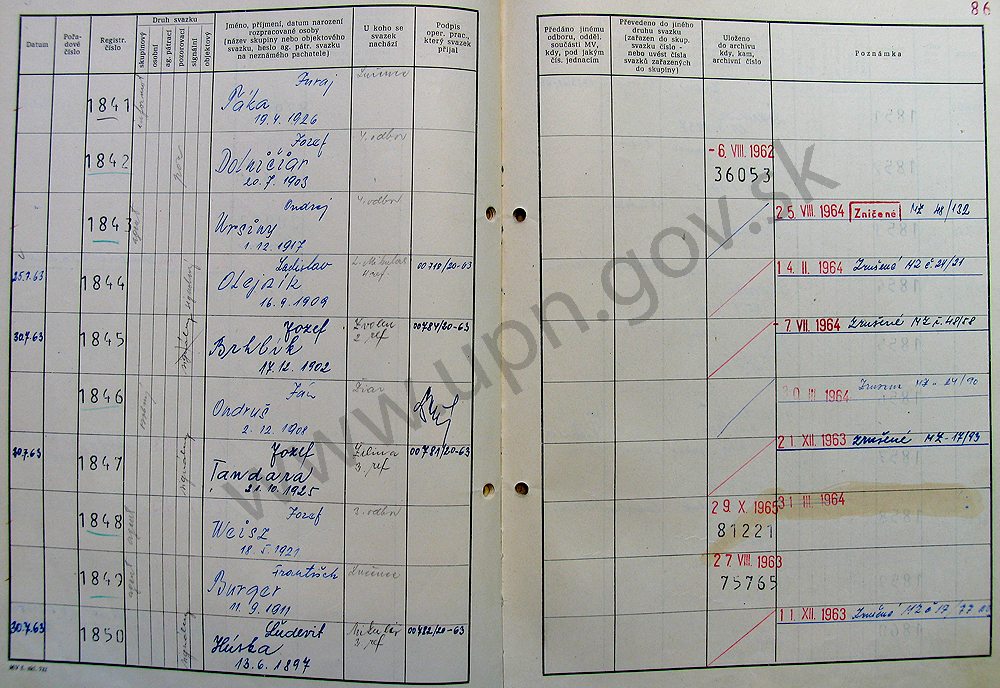 86
Datum
Pořa-
dové
číslo
Registr.
číslo
Druh svazku
skupinový
osobní
ag. pátrací
pozorovací
signální
objektový
Jméno, příjmení, datum narození
rozpracované osoby
(název skupiny nebo objektového
svazku, heslo ag. pátr. svazku
na neznámého pachatele)
U koho se
svazek
nachází
Podpis
oper. prac.,
který svazek
přijal
Předáno jinému
odboru, odděl.
součásti MV,
kdy, pod jakým
čís. jednacím
Převedeno do jiného
druhu svazku
(zařazen do skup.
svazku číslo -
nebo uvést čísla
svazků zařazených
do skupiny)
Uloženo
do archivu
kdy, kam,
archivní číslo
Poznámka
1841
Juraj
Páka
19.4.1926
Lučenec
1842
por
Jozef
Dolničiar
20.7.1903
4. odbor
- 6. VIII. 1962
36053
1843
agent
Ondrej
Ursíny
1.12.1917
4. odbor
25. VIII. 1964 Zničené MZ 48/132
25.7.63
1844
signálny
Ladislav
Olejník
16.9.1909
L. Mikuláš
ref
00710/20-63
14. II. 1964 Zrušené MZ č. 24/31
30.7.63
1845
signálny
Jozef
Brhlík
17.12.1902
Zvolen
2. ref
00784/20-63
- 7. VII. 1964 Zrušené MZ č. 48/58
1846
osobný
Ján
Ondruš
2.12.1908
Žiar
III. 1964
MZ - 24/90
30.7.63
1847
signálny
Jozef
Tandara
21.10.1925
Žilina
3. ref
00781/20-63
21. XII. 1963 zrušené MZ-17/93
1848
agent
Jozef
Weisz
18.5.1921
3. odbor
29. X. 1965
81221
31. III. 1964
1849
agent
František
Burger
11.9.1911
Lučenec
27. VIII. 1963
75765
30.7.63
1850
signálny
Ľudevít
Húska
13.6.1897
Mikuláš
3. ref
00482/20-63
11. XII. 1963 Zrušené MZ č 17/77
www.upn.gov.sk